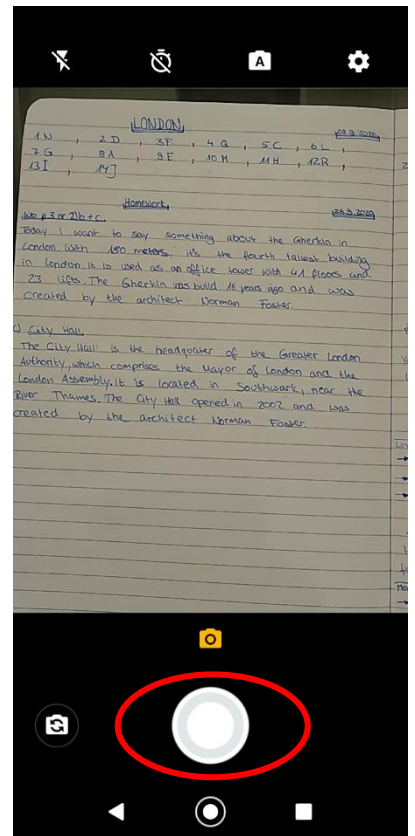 A
LONDON 29.9.2020
1 N , 2 D , 3F , 4 Q , 5C , 6L ,
7 G , 8 A , 9 E , 10 M , 11 H , 12R ,
13 I , 14J
Homework 29.9.2020
Wo p 3 nr 2)b + c.
Today I want to say something about the Gherkin in
London. With 180 meters, it's the fourth tallest building
in London. It is used as an office tower with 41 floors and
23 lifts. The Gherkin was build 16 years ago and was
created by the architect Norman Foster.
c) City Hall
The City Hall is the headquater of the Greater London
Authority, which comprises the Mayor of London and the
London Assembly. It is located in Southwark, near the
River Thames. The City Hall opened in 2002 and was
created by the architect Norman Foster.